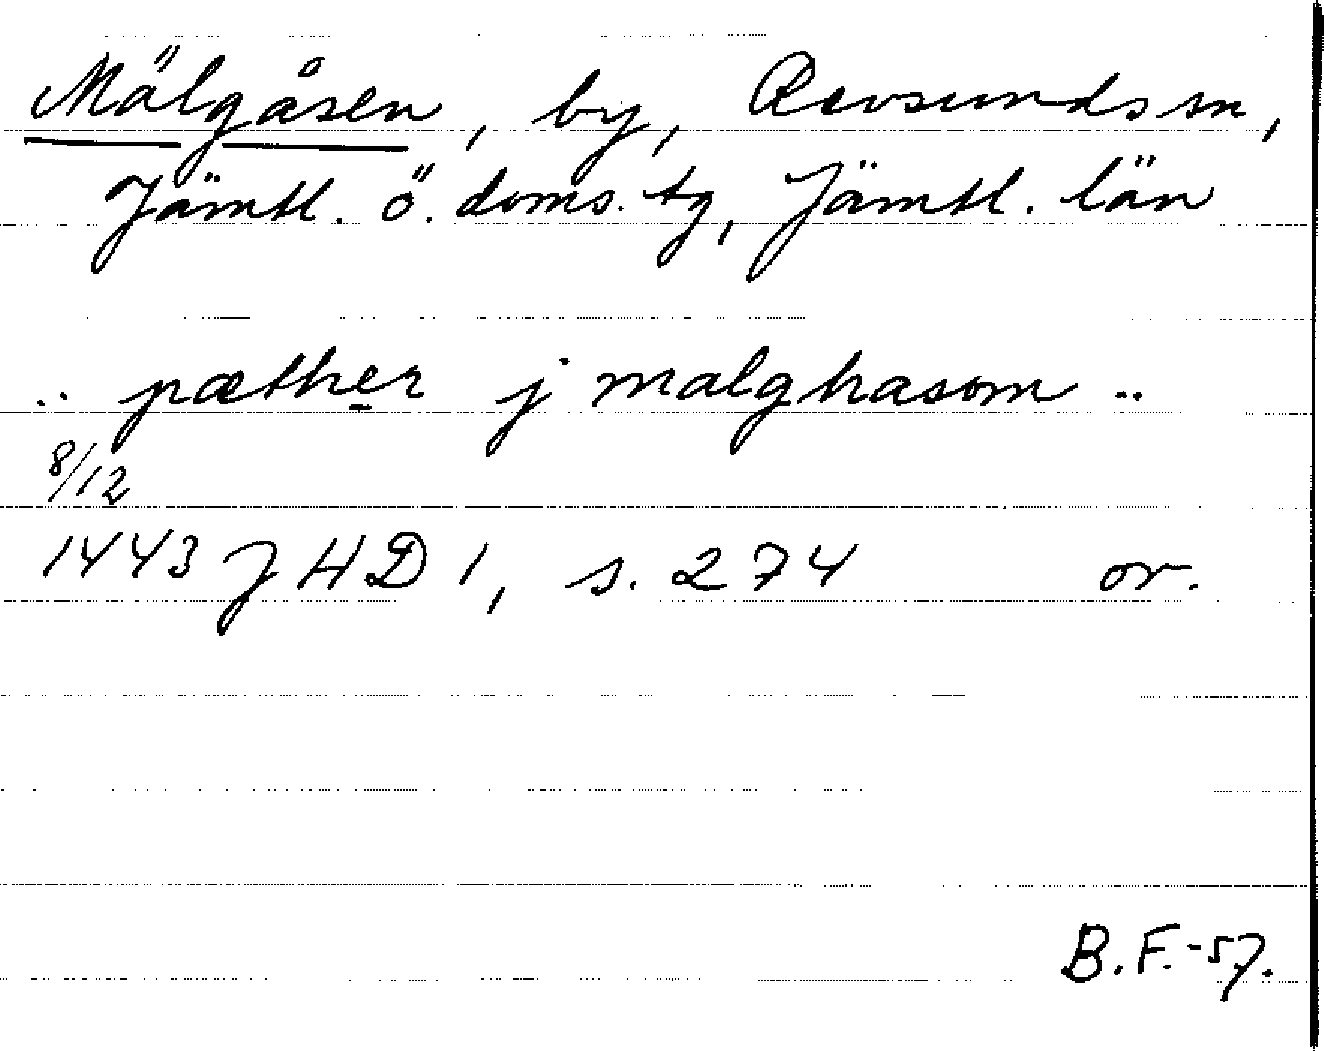 Mälgåsen, by, Revsunds sn,
Jämtl. ö. doms. tg, Jämtl. län
.. pæther j malghasom ..
8/12
1443 JHD 1, s. 274 or.
B.F.-57.